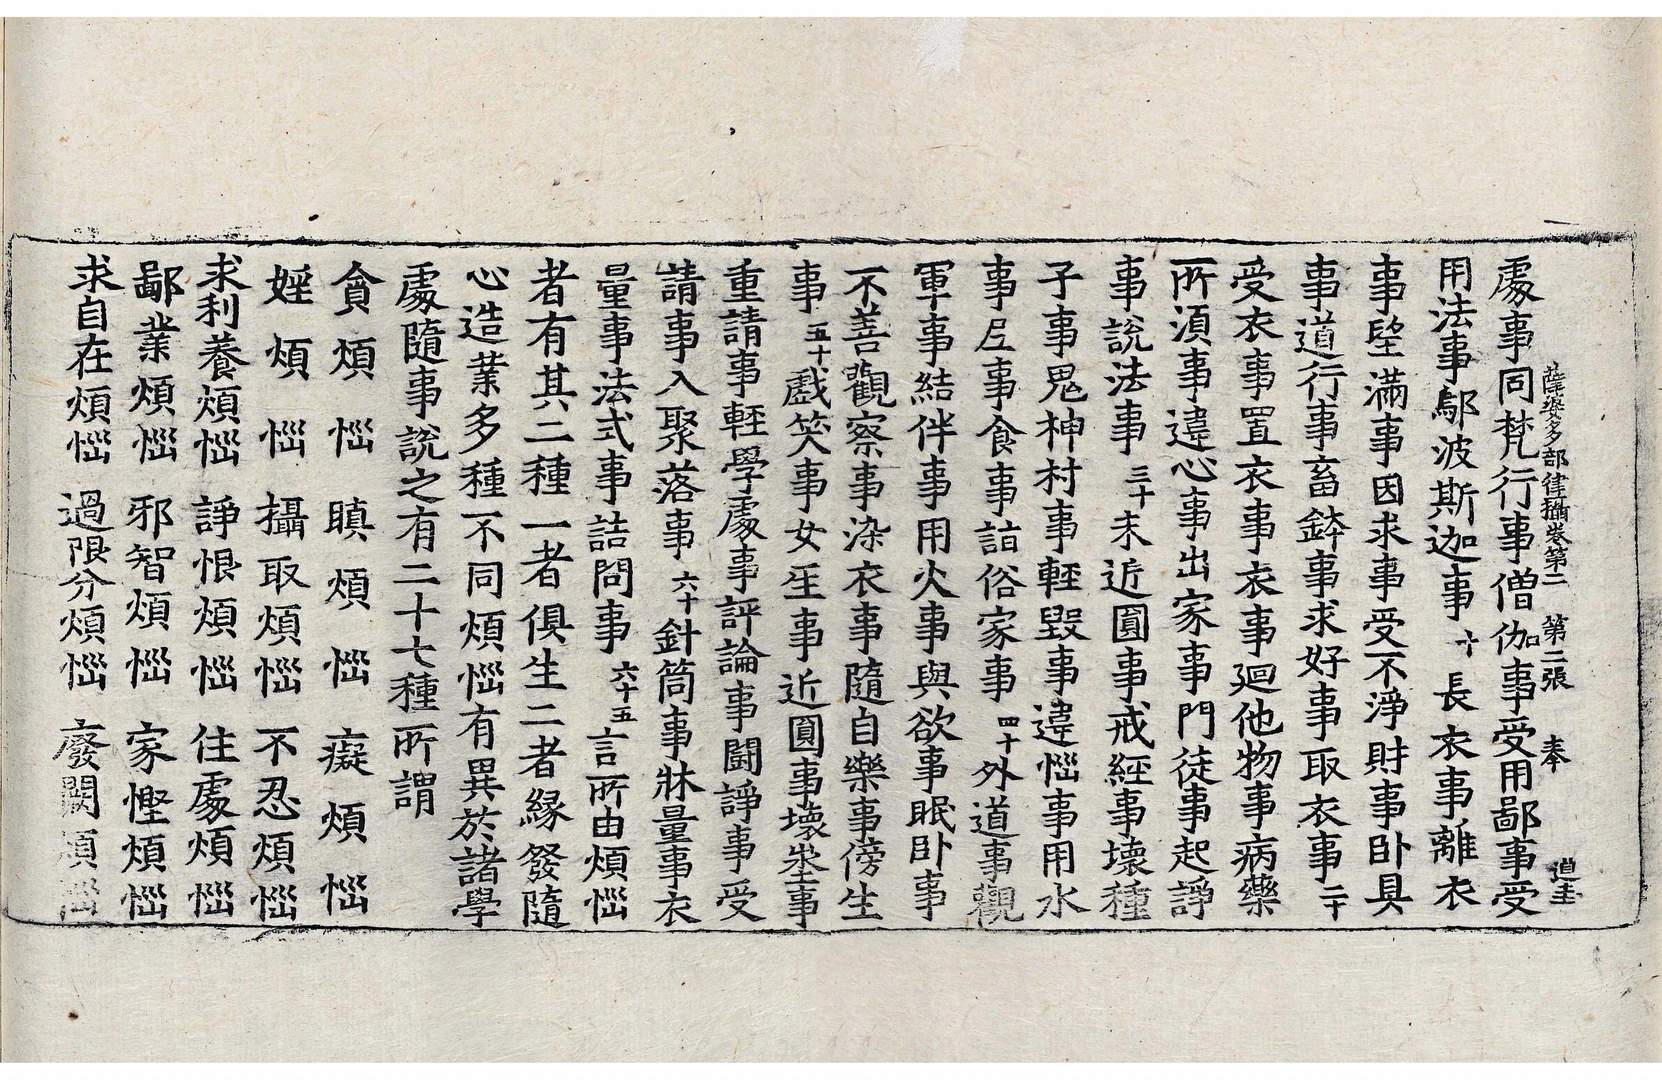 薩婆多部律攝卷第二　第二張　奉　逈圭
處事同梵行事僧伽事受用鄙事受
用法事鄔波斯迦事十長衣事離衣
事望滿事因求事受不淨財事卧具
事道行事畜鉢事求好事取衣事二十
受衣事置衣事衣事廻他物事病藥
所湏事違心事出家事門徒事起諍
事說法事三十未近圓事戒經事壞種
子事鬼神村事輕毀事違惱事用水
事尼事食事詣俗家事四十外道事觀
軍事結伴事用火事與欲事眠卧事
不善觀察事染衣事隨自樂事傍生
事五十戲笑事女生事近圓事壞埊事
重請事輕學處事評論事鬪諍事受
請事入聚落事六十針筒事牀量事衣
量事法式事詰問事六十五言所由煩惱
者有其二種一者俱生二者緣發隨
心造業多種不同煩惱有異於諸學
處隨事說之有二十七種所謂
貪煩惱　瞋煩惱　癡煩惱
婬煩惱　攝取煩惱　不忍煩惱
求利養煩惱　諍恨煩惱　住處煩惱
鄙業煩惱　邪智煩惱　家慳煩惱
求自在煩惱　過限分煩惱　廢闕煩惱